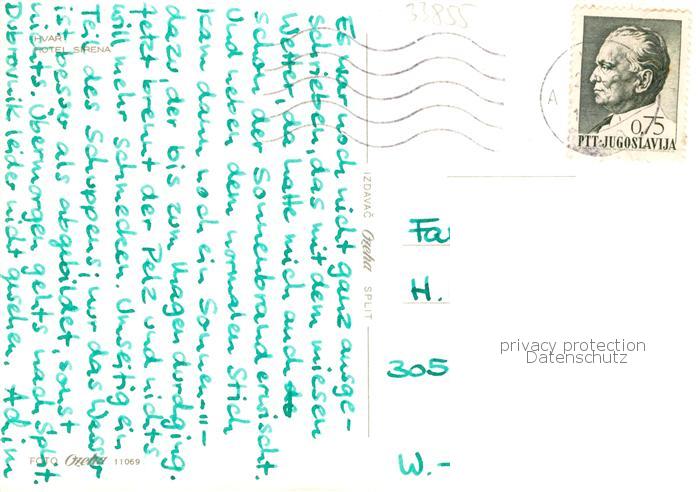 33855
HVAR
HOTEL SIRENA
Es war noch nicht ganz ausge-
schrieben, das mit dem miesen
Wetter, da hatte mich auch
schon der Sonnenbrand erwischt.
Und neben dem normalen Stich
kam dann noch ein Sonnen-"-
dazu, der bis zum Magen durchging.
Jetzt brennt der Pelz und nichts
will mehr schmecken. Umseitig ein
Teil des Schuppens, nur das Wasser
ist besser als abgebildet, sonst
nichts. Übermorgen gehts nach Split.
Dubrovnik leider nicht gesehen.
FOTO Ozeha 11069
IZDAVAČ Ozeha SPLIT
0,75
PTT-JUGOSLAVIJA
A
Fa
H.
305
W.-
privacy protection
Datenschutz